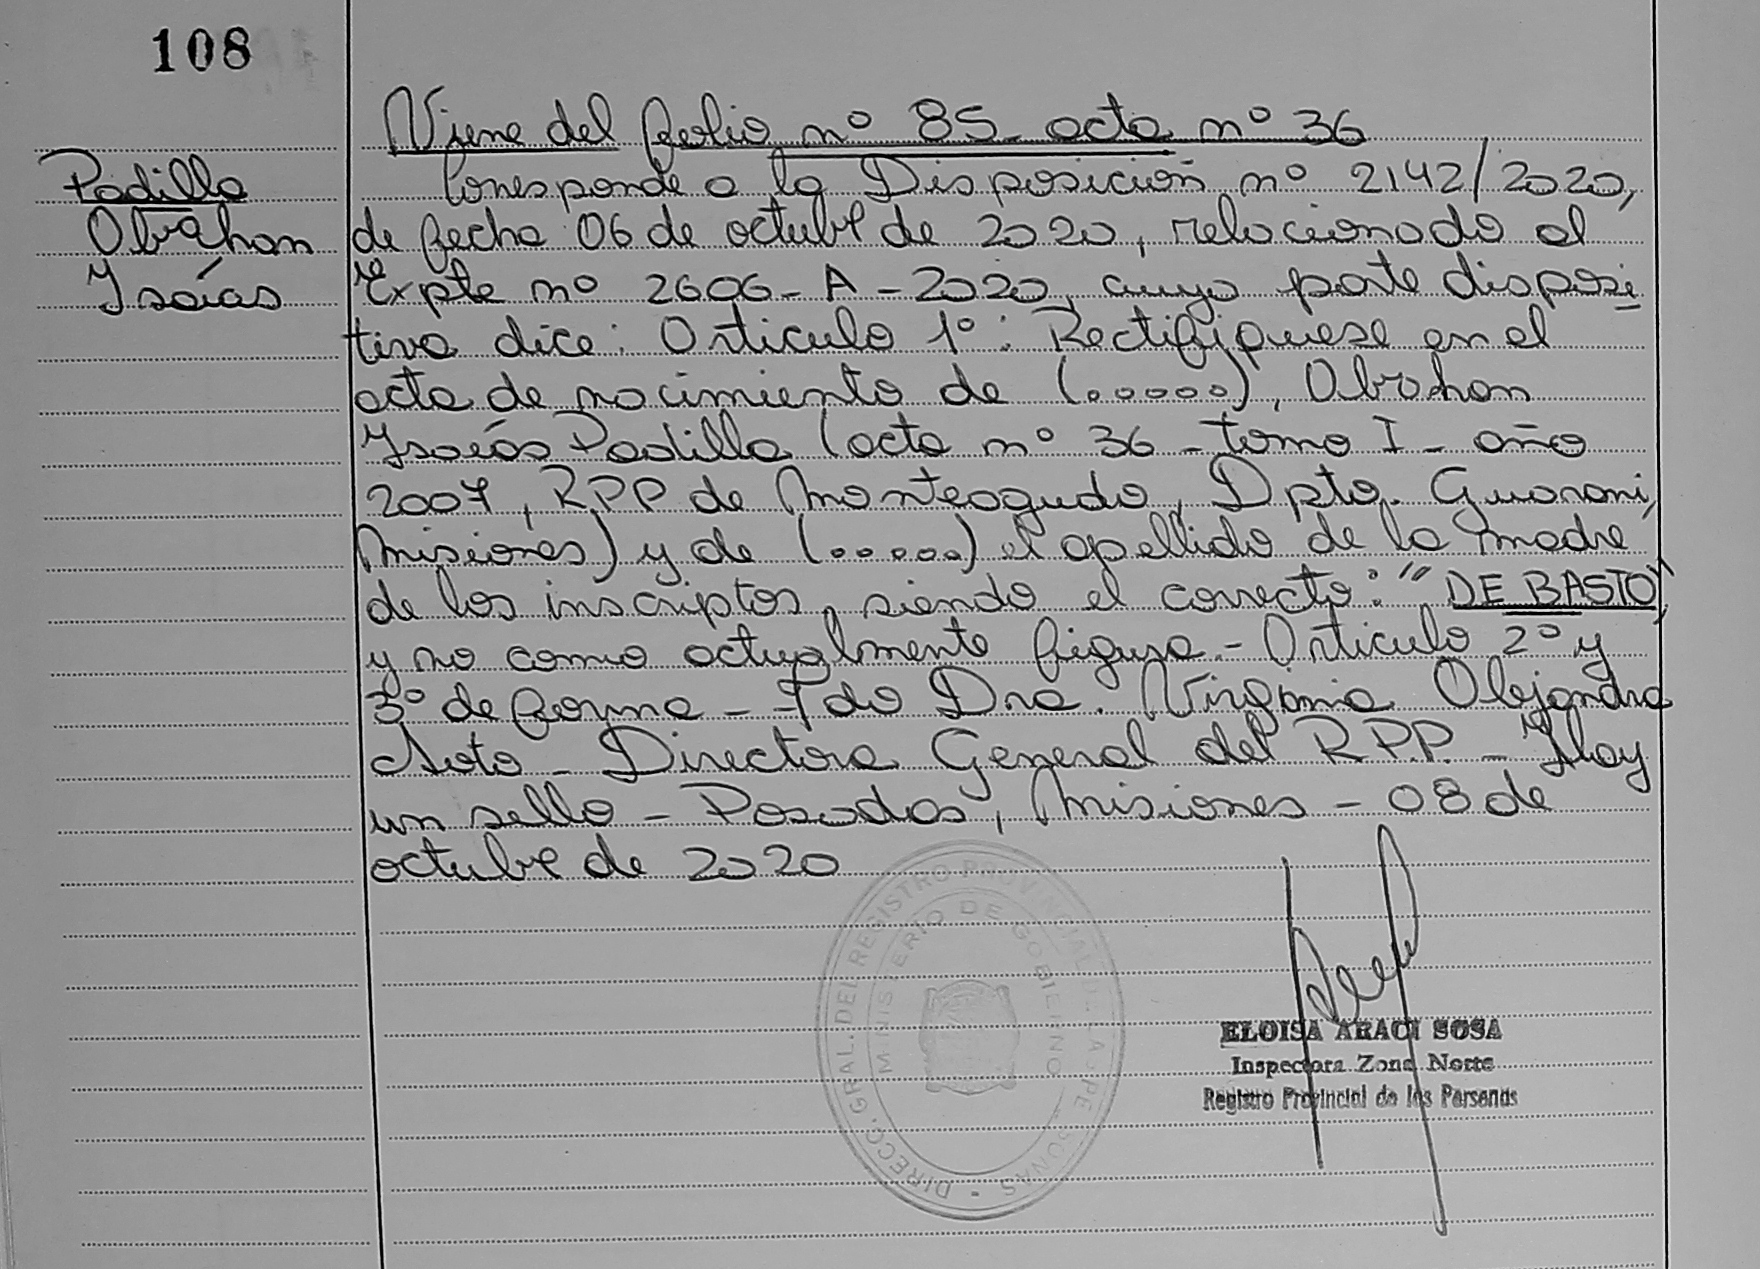 108
Viene del folio nº 85 - acta nº 36
Padilla
Abrahan
Isaías
Corresponde a la Disposición nº 2142/2020,
de fecha 06 de octubre de 2020, relacionado al
Expte nº 2606-A-2020, cuya parte disposi
tiva dice: Artículo 1º: Rectifíquese en el
acta de nacimiento de (.....), Abrahan
Isaías Padilla (acta nº 36 - tomo I - año
2007, RPP de Monteagudo, Dpto. Guaraní,
Misiones) y de (......) el apellido de la madre
de los inscriptos, siendo el correcto: "DE BASTO",
y no como actualmente figura.- Artículo 2º y
3º de forma - Fdo Dra. Virginia Alejandra
Neto - Directora General del R.P.P. - Hay
un sello - Posadas, Misiones - 08 de
octubre de 2020
DIRECC. GRAL. DEL REGISTRO PROVINCIAL DE LAS PERSONAS
MINISTERIO DE GOBIERNO
ELOISA ARACI SOSA
Inspectora Zona Norte
Registro Provincial de las Personas